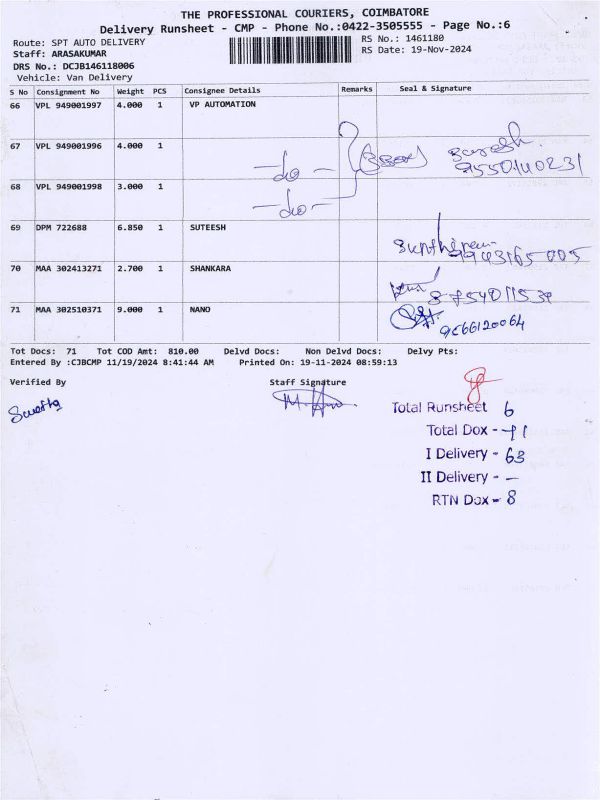 THE PROFESSIONAL COURIERS, COIMBATORE
Delivery Runsheet - CMP - Phone No.:0422-3505555 - Page No.:6
Route: SPT AUTO DELIVERY
RS No.: 1461180
Staff: ARASAKUMAR
RS Date: 19-Nov-2024
DRS No.: DCJB146118006
Vehicle: Van Delivery
S No Consignment No Weight PCS Consignee Details Remarks Seal & Signature
66 VPL 949001997 4.000 1 VP AUTOMATION
67 VPL 949001996 4.000 1 —do—
Suresh
9550140231
68 VPL 949001998 3.000 1 —do—
69 DPM 722688 6.850 1 SUTEESH
70 MAA 302413271 2.700 1 SHANKARA
71 MAA 302510371 9.000 1 NANO 9566120064
Tot Docs: 71 Tot COD Amt: 810.00 Delvd Docs: Non Delvd Docs: Delvy Pts:
Entered By :CJBCMP 11/19/2024 8:41:44 AM Printed On: 19-11-2024 08:59:13
Verified By Staff Signature
Total Runsheet 6
Total Dox - 71
I Delivery - 63
II Delivery - —
RTN Dox - 8